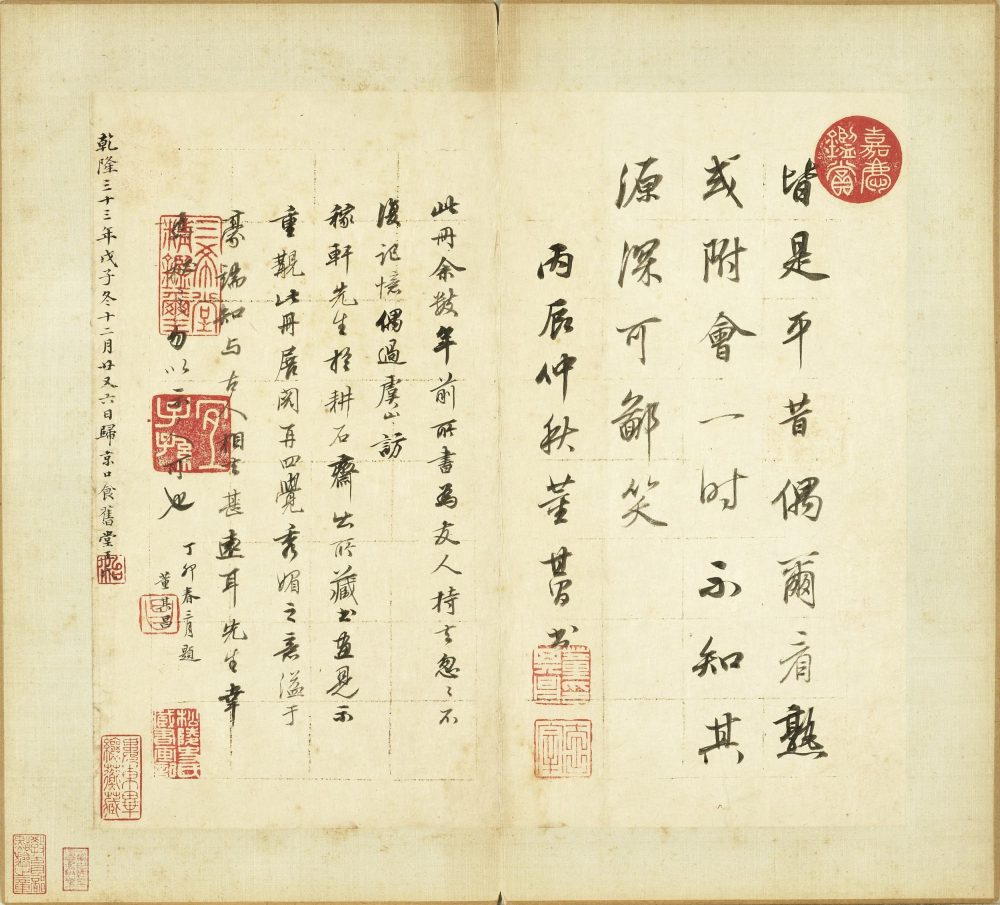 嘉慶鑑賞
皆是平昔偶爾看熟
或附會一時不知其
源深可鄙笑
丙辰仲秋董其昌書
此冊余數年前所書為友人持去忽々不
復記憶偶過虞山訪
稼軒先生於耕石齋出所藏書畫見示
重觀此冊展閱再四覺秀媚之意溢于
毫端知与古人相去甚遠耳先生幸
勿以示可也
丁卯春三月題
董其昌
三希堂精鑑璽
宜子孫
乾隆三十三年戊子冬十二月廿又六日歸京口食舊堂王